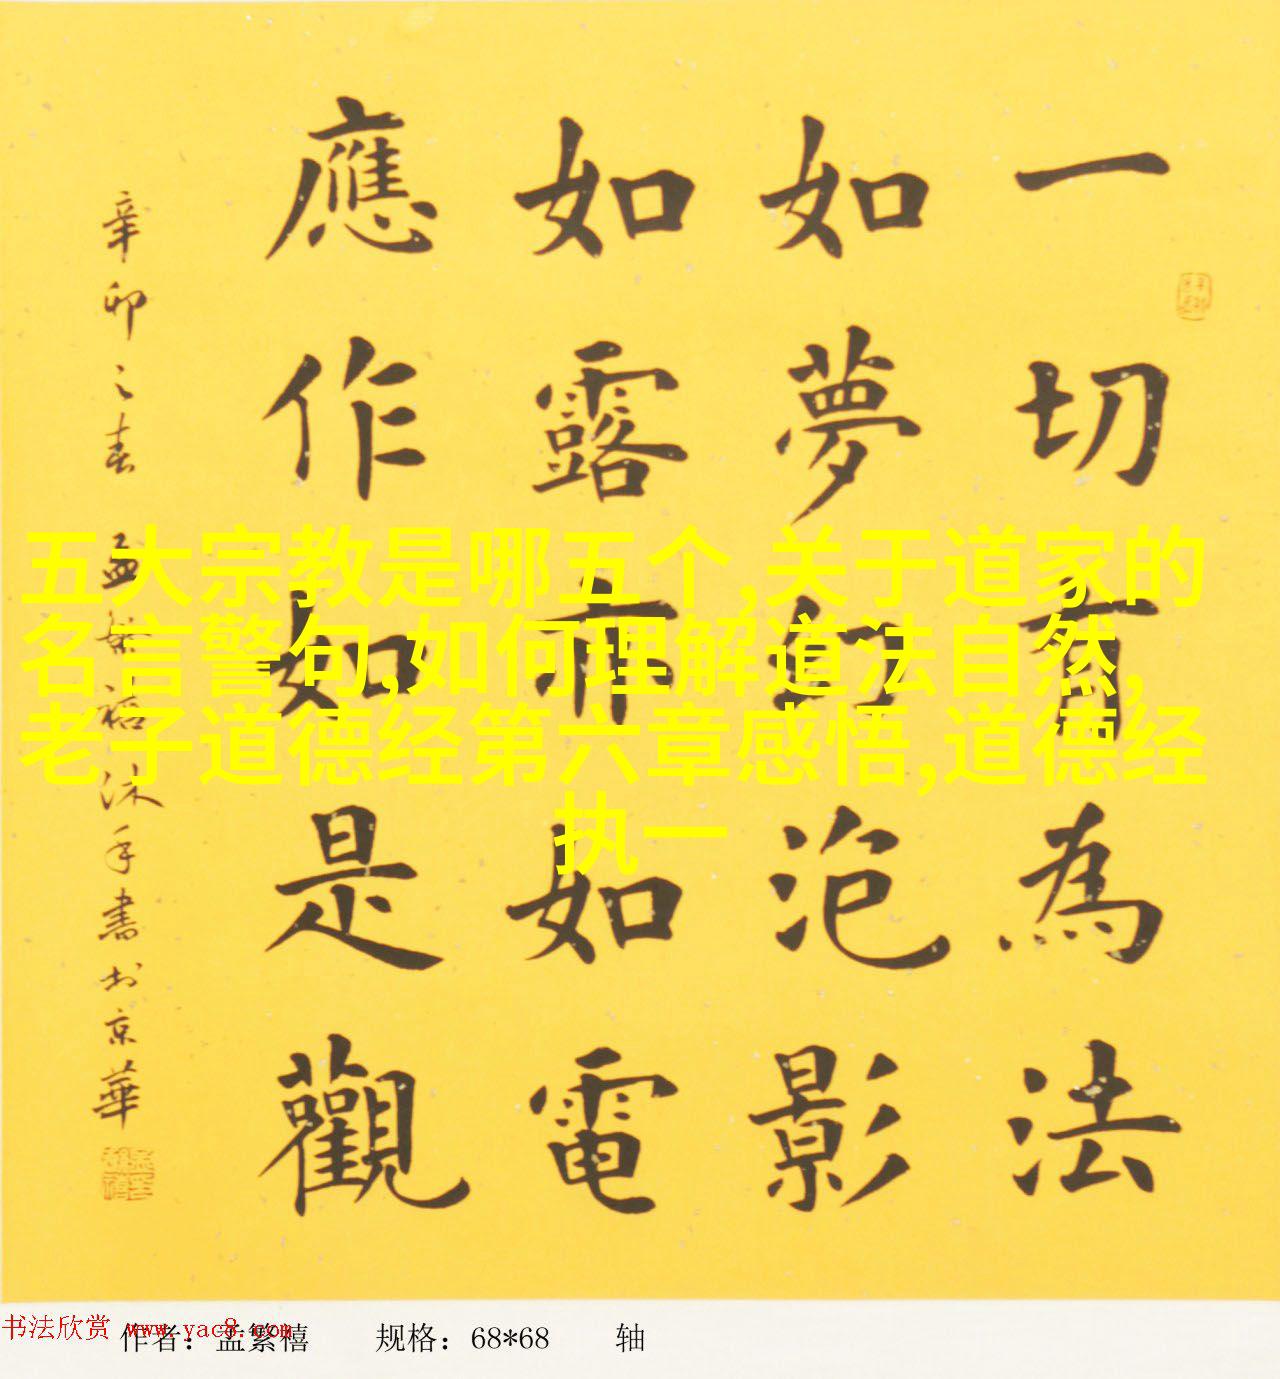 一切有為法
如夢幻泡影
如露亦如電
應作如是觀
辛卯之春 孟繁禧沐手書於京華
五大宗教是哪五个,关于道家的
名言警句,如何理解道法自然,
老子道德经第六章感悟,道德经
执一
书法欣赏 www.yac8.com
作者：孟繁禧 规格：68*68 轴